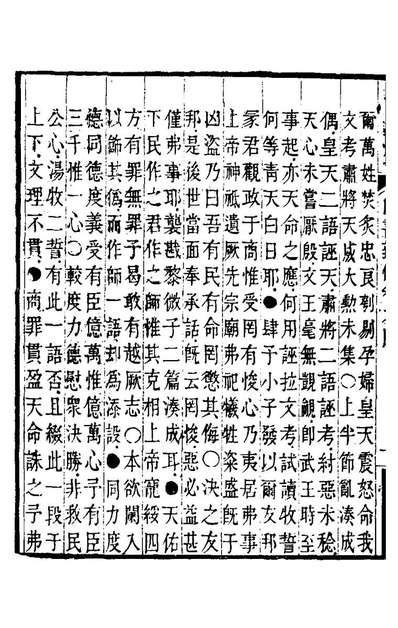 爾萬姓焚炙忠良刳剔孕婦皇天震怒命我
文考肅將天威大勲未集○上半節亂湊成
偶皇天二語誣天肅將二語誣考紂惡未稔
天心未嘗厭殷文王毫無覬覦卽武王時至
事起亦天命之應何用誣拉文考試讀牧誓
何等青天白日耶●肆予小子發以爾友邦
冢君觀政于商惟受罔有悛心乃夷居弗事
上帝神祗遺厥先宗廟弗祀犧牲粢盛旣于
凶盜乃曰吾有民有命罔懲其侮○決之友
邦是後世當面奉承話旣云罔悛惡必益甚
僅弗事耶襲戡黎微子二篇湊成耳●天佑
下民作之君作之師惟其克相上帝寵綏四
方有罪無罪予曷敢有越厥志○本欲闌入
以飾其僞而作師一語却爲添設●同力度
德同德度義受有臣億萬惟億萬心予有臣
三千惟一心○較度力德慰衆決勝非救民
公心湯牧二誓有此一語否且綴此一段于
上下文理不貫●商罪貫盈天命誅之予弗